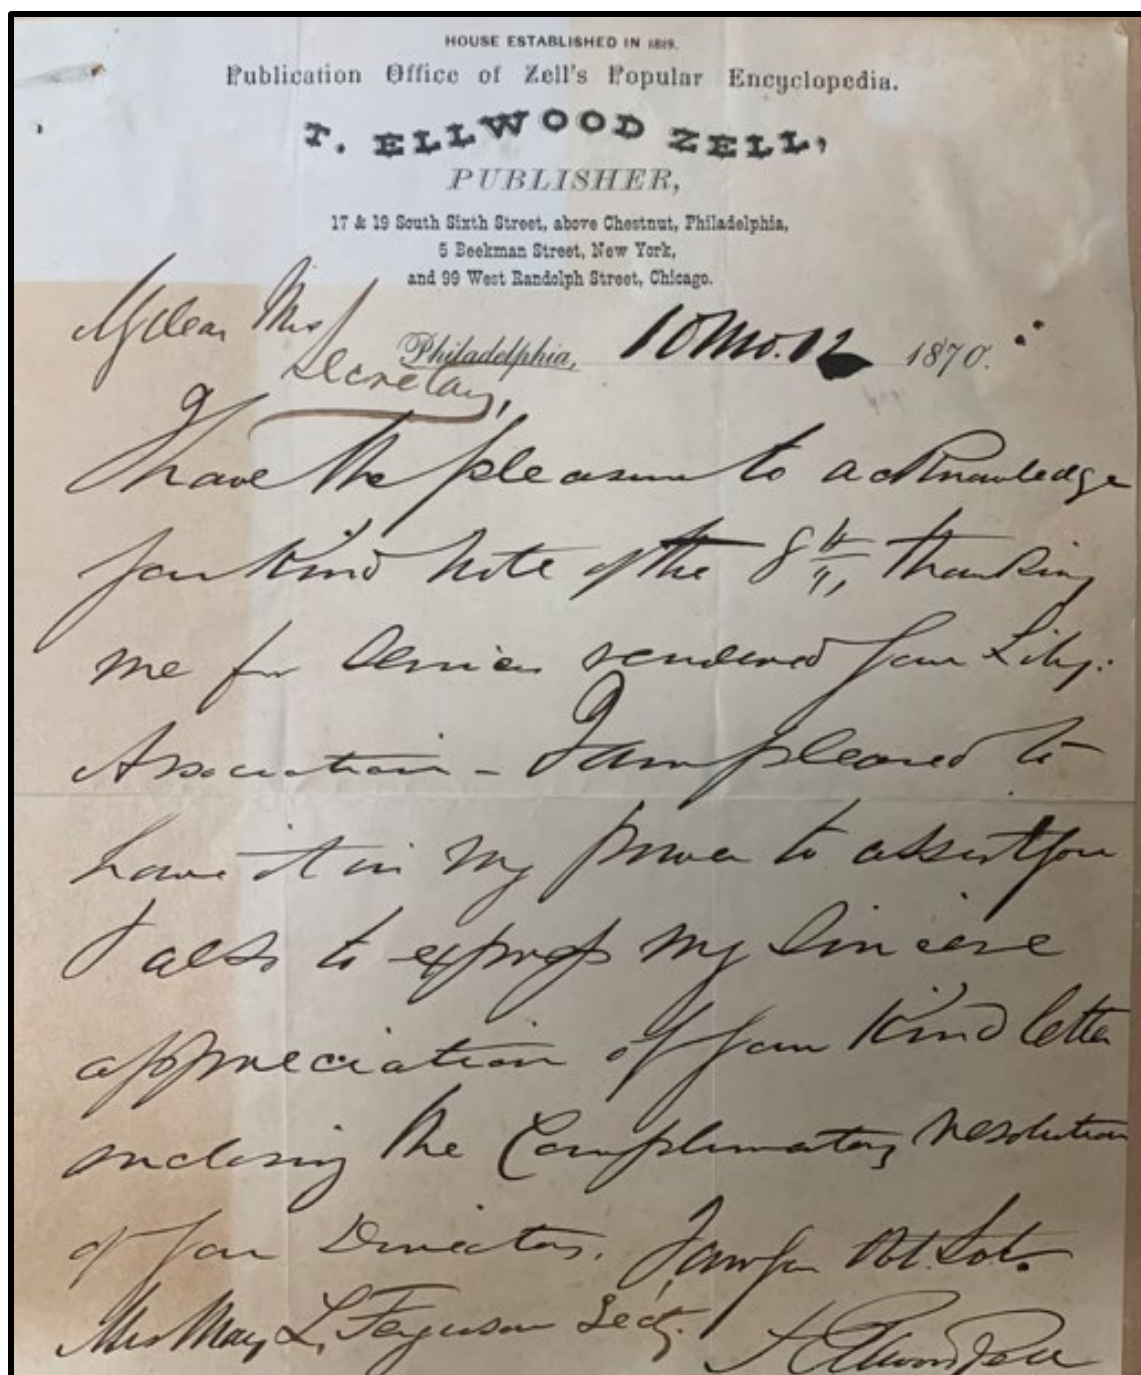 HOUSE ESTABLISHED IN 1819.
Publication Office of Zell's Popular Encyclopedia.
T. ELLWOOD ZELL,
PUBLISHER,
17 & 19 South Sixth Street, above Chestnut, Philadelphia,
5 Beekman Street, New York,
and 99 West Randolph Street, Chicago.
My dear Mrs
Secretary,
Philadelphia, 10 Mo. 12 1870.
I have the pleasure to acknowledge
your kind note of the 8th thanking
me for services rendered your Liby.
Association - I am pleased to
have it in my power to assist you
& also to express my sincere
appreciation of your kind letter
enclosing the Complimentary resolution
of your Directors. I am yr Obt. Svt.
Mrs Mary L. Ferguson Secty.
T Ellwood Zell